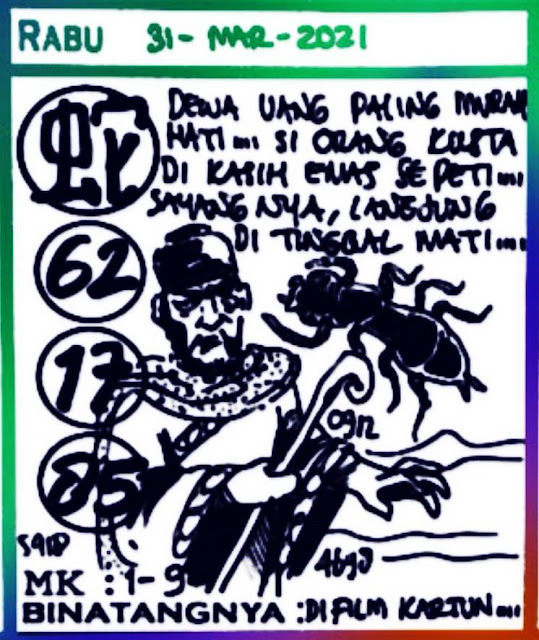 RABU 31-MAR-2021
DEWA UANG PALING MURAH
HATI... SI ORANG KUSTA
DI KASIH EMAS SEPETI...
SAYANG NYA, LANGSUNG
DI TINGGAL MATI...
62
17
85
MK : 1-9
BINATANGNYA : DI FILM KARTUN...